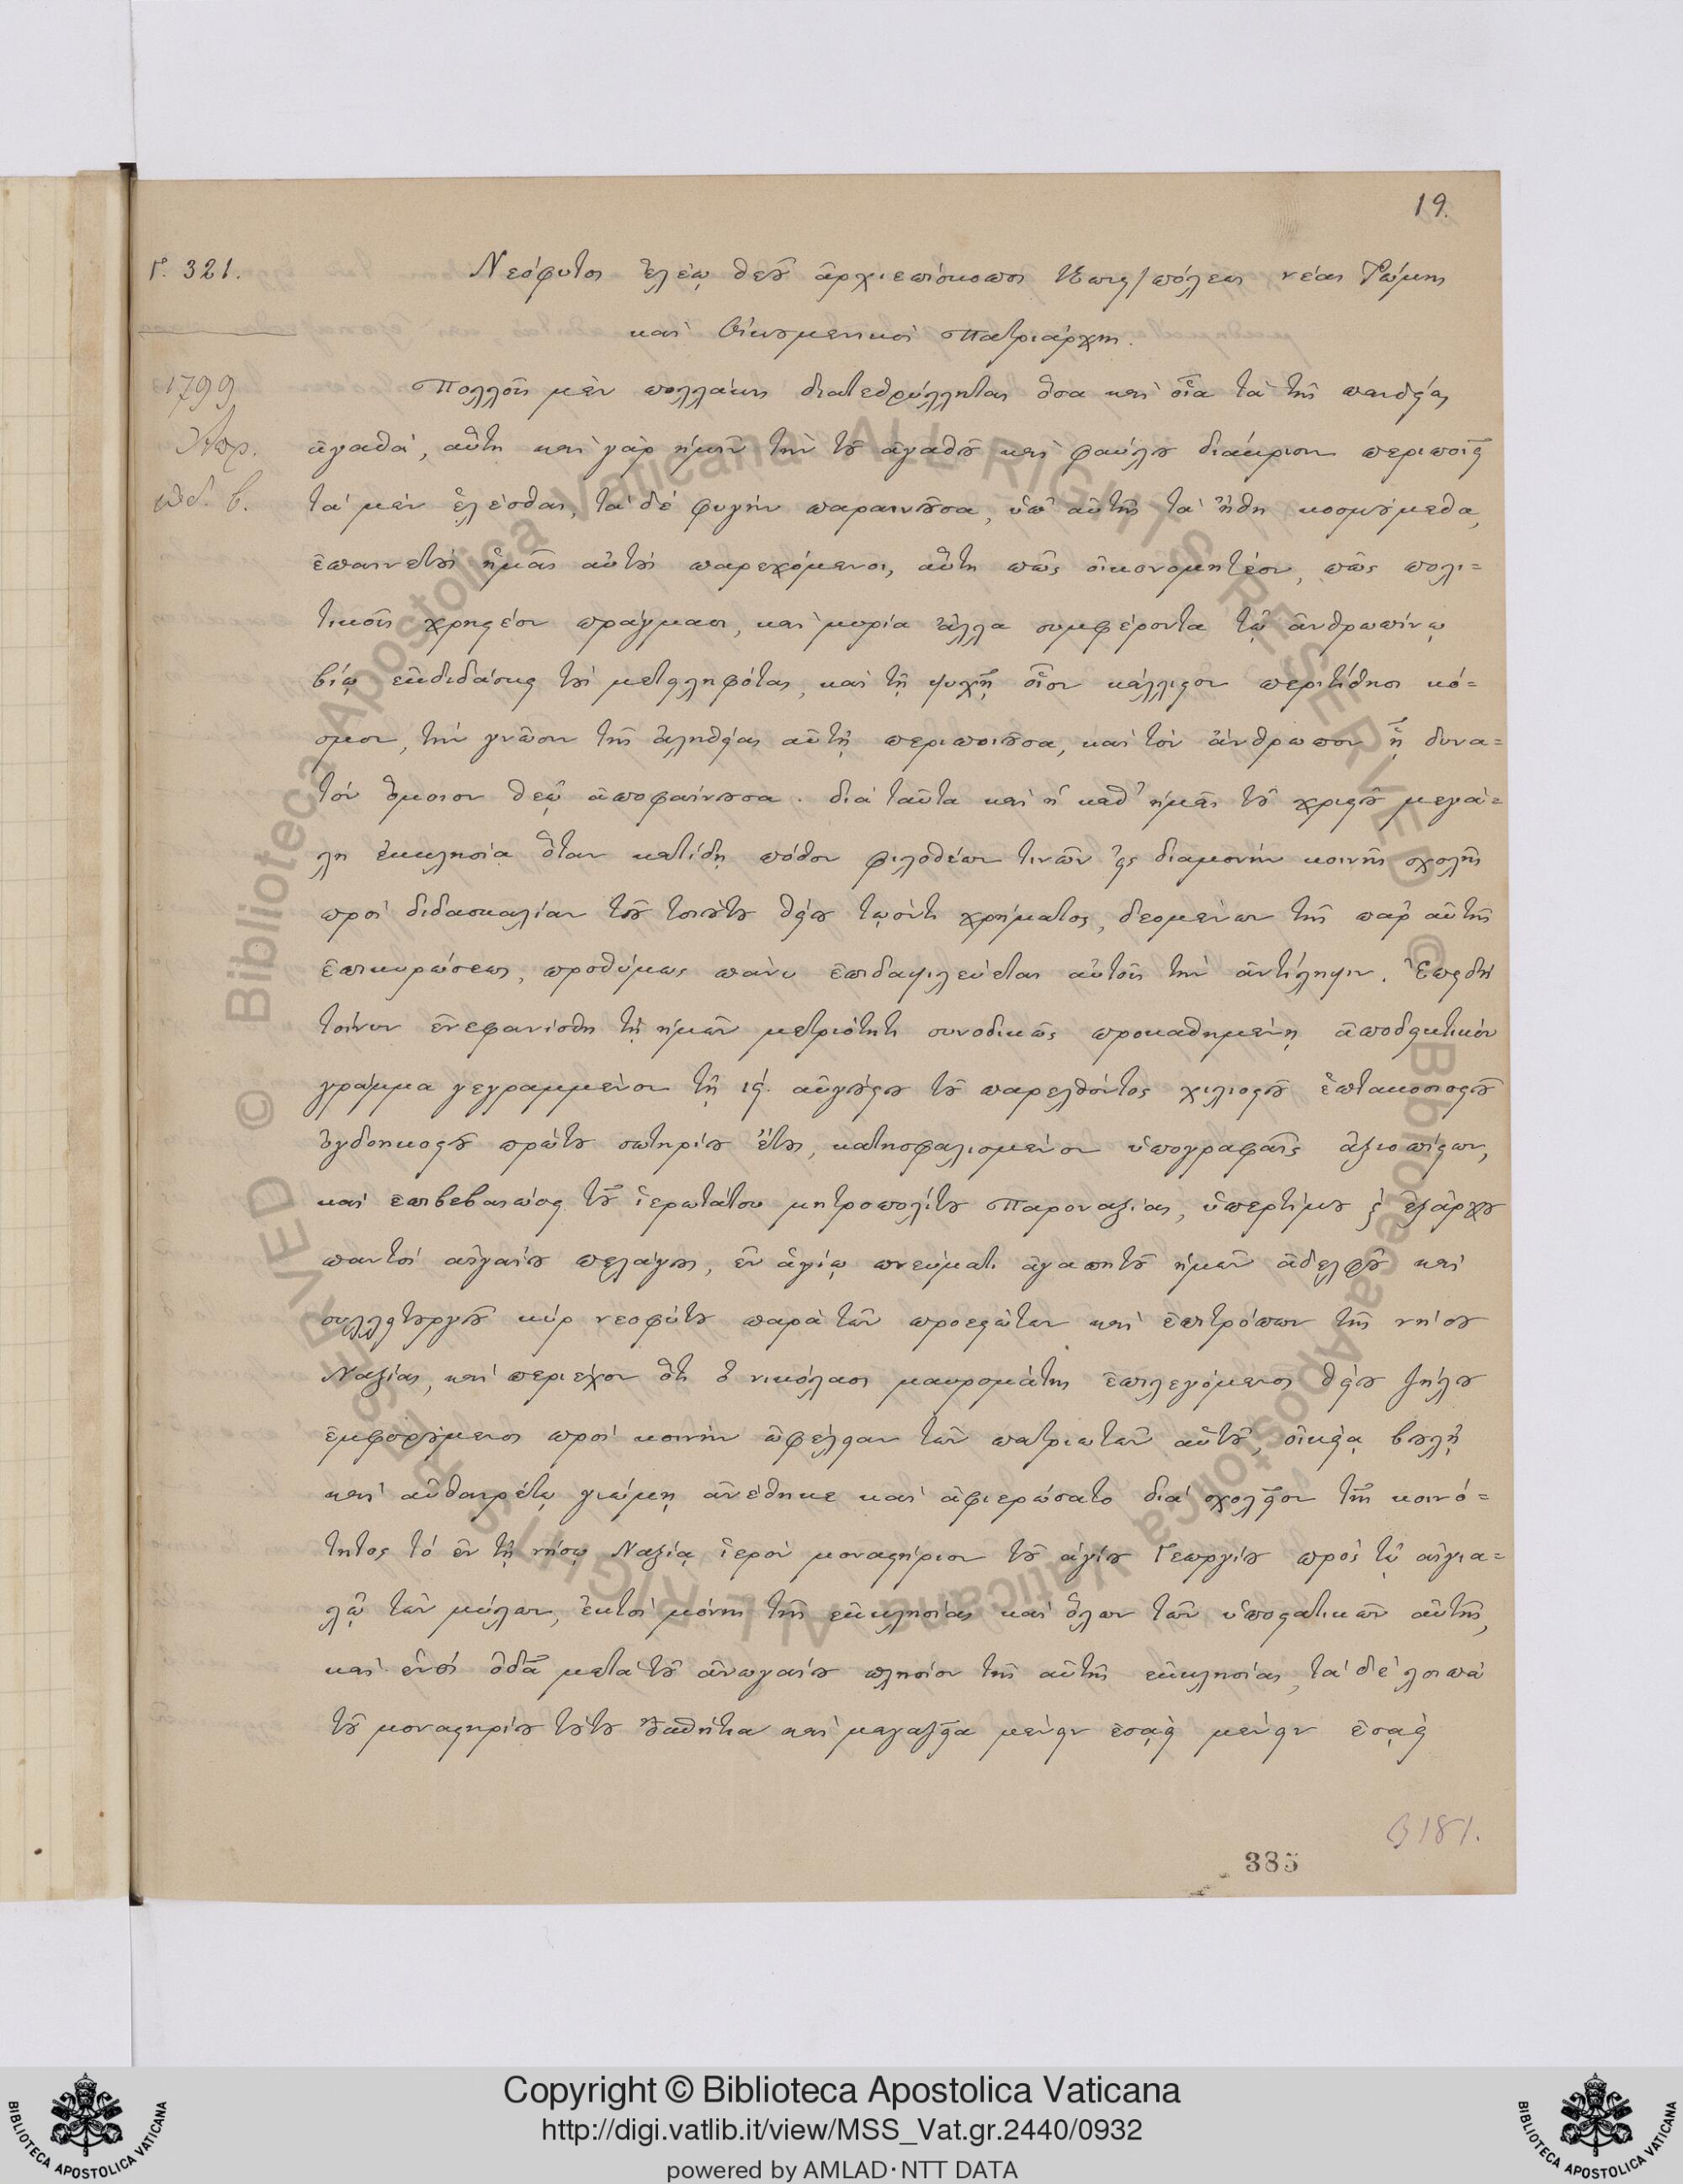 19.
Γ. 321.
Νεόφυτος ἐλέῳ θεοῦ ἀρχιεπίσκοπος Κωνς/πόλεως νέας Ῥώμης
καὶ Οἰκουμενικὸς Πατριάρχης.
1799
Ἀπρ.
ἰνδ. β.
Πολλοῖς μὲν πολλάκις διατεθρύλληται ὅσα καὶ οἷα τὰ τῆς παιδείας
ἀγαθά, αὕτη καὶ γὰρ ἡμῖν τὴν τοῦ ἀγαθοῦ καὶ φαύλου διάκρισιν περιποιεῖ
τὰ μὲν ἑλέσθαι, τὰ δὲ φυγεῖν παραινοῦσα, ὑπ' αὐτῆς τὰ ἤθη κοσμούμεθα,
ἐπαινετοὺς ἡμᾶς αὐτοὺς παρεχόμενοι, αὕτη πῶς οἰκονομητέον, πῶς πολι=
τικοῖς χρηστέον πράγμασι, καὶ μυρία ἄλλα συμφέροντα τῷ ἀνθρωπίνῳ
βίῳ ἐκδιδάσκει τοὺς μετειληφότας, καὶ τῇ ψυχῇ οἷον κάλλιστον περιτίθησι κό=
σμον, τὴν γνῶσιν τῆς ἀληθείας αὐτῇ περιποιοῦσα, καὶ τὸν ἄνθρωπον ᾗ δυνα=
τὸν ὅμοιον θεῷ ἀποφαίνουσα. διὰ ταῦτα καὶ ἡ καθ' ἡμᾶς τοῦ χριστοῦ μεγά=
λη ἐκκλησία ὅταν κατίδῃ πόθον φιλοθέων τινῶν εἰς διαμονὴν κοινῆς σχολῆς
πρὸς διδασκαλίαν τοῦ τοιούτου θείου τῳόντι χρήματος, δεομένων τῆς παρ' αὐτῆς
ἐπικυρώσεως, προθύμως πάνυ ἐπιδαψιλεύεται αὐτοῖς τὴν ἀντίληψιν. Ἐπειδὴ
τοίνυν ἐνεφανίσθη τῇ ἡμῶν μετριότητι συνοδικῶς προκαθημένῃ ἀποδεικτικὸν
γράμμα γεγραμμένον τῇ ιϛ. αὐγούστου τοῦ παρελθόντος χιλιοστοῦ ἑπτακοσιοστοῦ
ὀγδοηκοστοῦ πρώτου σωτηρίου ἔτους, κατησφαλισμένον ὑπογραφαῖς ἀξιοπίστων,
καὶ ἐπιβεβαιώσει τοῦ ἱερωτάτου μητροπολίτου Παροναξίας, ὑπερτίμου ϗ ἐξάρχου
παντὸς αἰγαίου πελάγους, ἐν ἁγίῳ πνεύματι ἀγαπητοῦ ἡμῶν ἀδελφοῦ καὶ
συλλειτουργοῦ κὺρ νεοφύτου παρὰ τῶν προεστώτων καὶ ἐπιτρόπων τῆς νήσου
Ναξίας, καὶ περιέχον ὅτι ὁ νικόλαος μαυρομάτης ἐπιλεγόμενος θείου ζήλου
ἐμφορούμενος πρὸς κοινὴν ὠφέλειαν τῶν πατριωτῶν αὐτοῦ, οἰκείᾳ βουλῇ
καὶ αὐθαιρέτῳ γνώμῃ ἀνέθηκε καὶ ἀφιερώσατο διὰ σχολεῖον τῆς κοινό=
τητος τὸ ἐν τῇ νήσῳ Ναξίᾳ ἱερὸν μοναστήριον τοῦ ἁγίου Γεωργίου πρὸς τῷ αἰγια=
λῷ τῶν μύλων, ἐκτὸς μόνης τῆς ἐκκλησίας καὶ ὅλων τῶν ὑποστατικῶν αὐτῆς,
καὶ ἑνὸς ὀδᾶ μετὰ τοῦ ἀνωγαίου πλησίον τῆς αὐτῆς ἐκκλησίας, τὰ δὲ λοιπὰ
τοῦ μοναστηρίου τούτου καὶ μαγαζεῖα μένειν
385
181.
Copyright © Biblioteca Apostolica Vaticana
http://digi.vatlib.it/view/MSS_Vat.gr.2440/0932
powered by AMLAD·NTT DATA
BIBLIOTECA APOSTOLICA VATICANA
BIBLIOTECA APOSTOLICA VATICANA